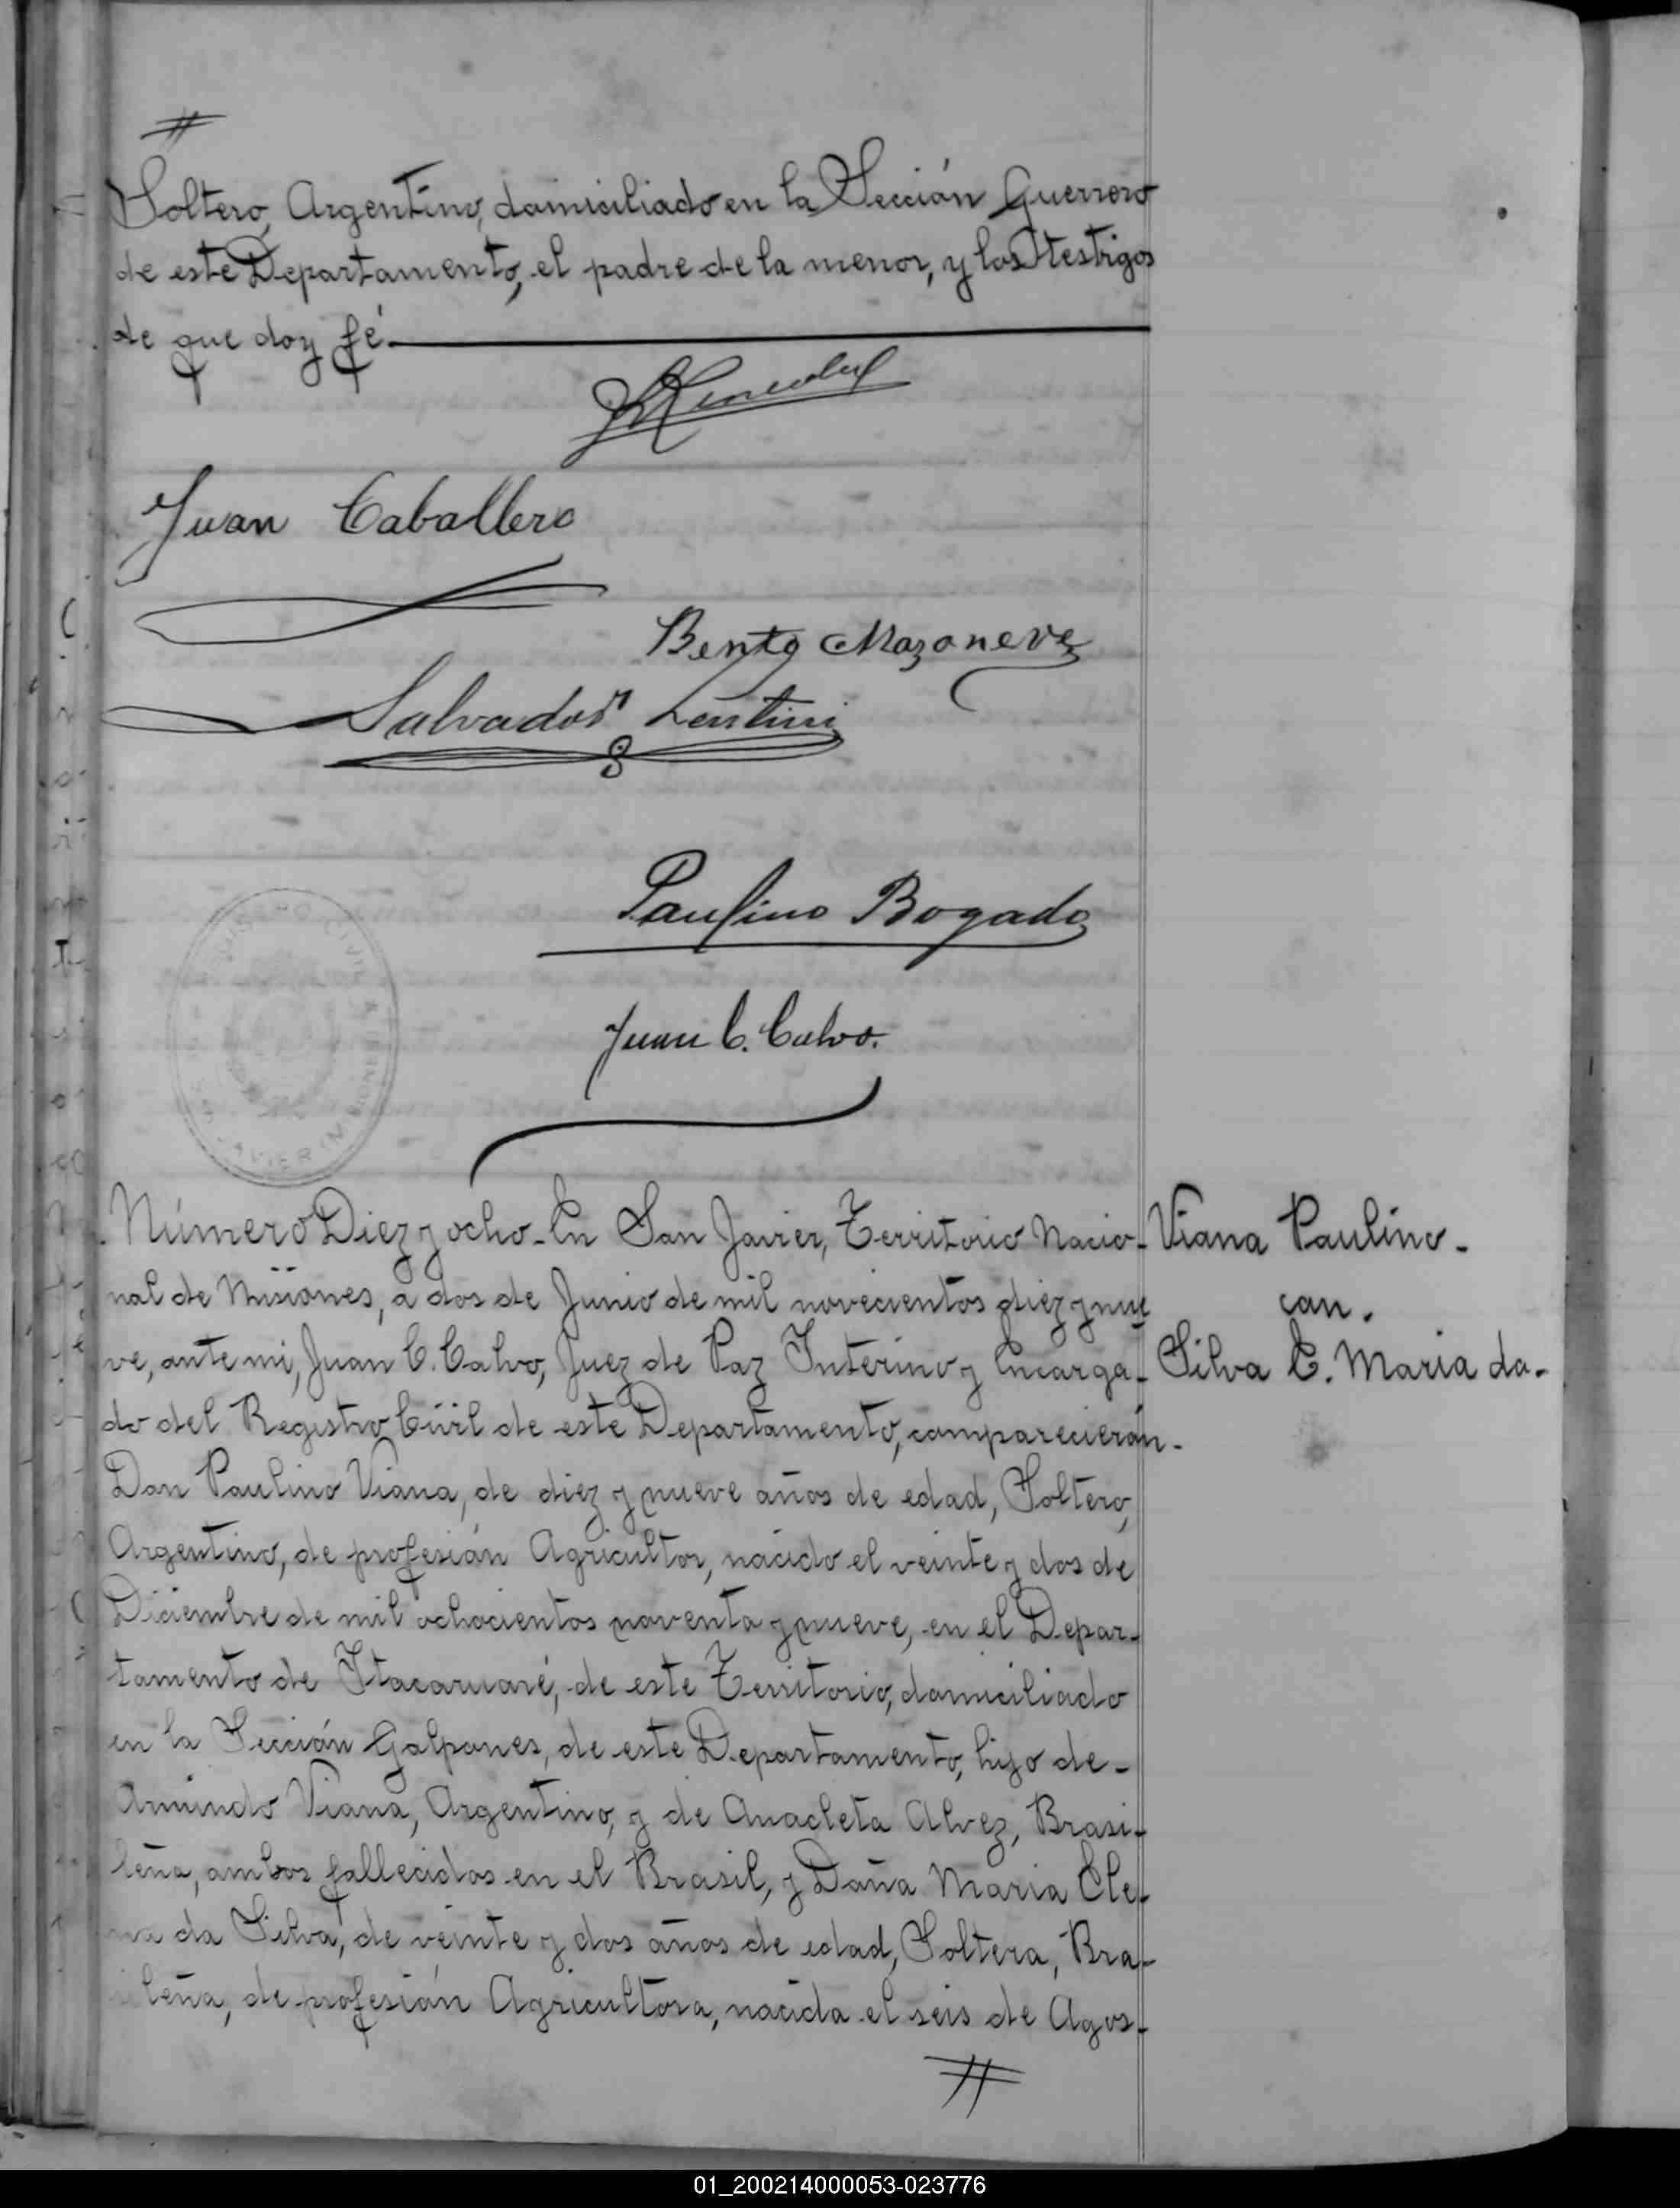 #
Soltero, Argentino, domiciliado en la Sección Guerrero
de este Departamento, el padre de la menor, y los testigos
de que doy fé.
Juan Caballero
Bento
Salvador Lentini
Paulino Bogado
Juan C. Calvo.
Número Diez y ocho - En San Javier, Territorio Nacio-
nal de Misiones, a dos de Junio de mil novecientos diez y nue
ve, ante mi, Juan C. Calvo, Juez de Paz Interino y Encarga-
do del Registro Civil de este Departamento, comparecierón -
Don Paulino Viana, de diez y nueve años de edad, Soltero,
Argentino, de profesión Agricultor, nacido el veinte y dos de
Diciembre de mil ochocientos noventa y nueve, en el Depar-
tamento de Itacaruaré, de este Territorio, domiciliado
en la Sección Galpones, de este Departamento, hijo de -
Viana, Argentino, y de Anacleta Alvez, Brasi-
leña, ambos fallecidos en el Brasil, y Doña Maria Ele-
na da Silva, de veinte y dos años de edad, Soltera, Bra-
sileña, de profesión Agricultora, nacida el seis de Agos-
#
Viana Paulino -
con.
Silva E. Maria da -
01_200214000053-023776